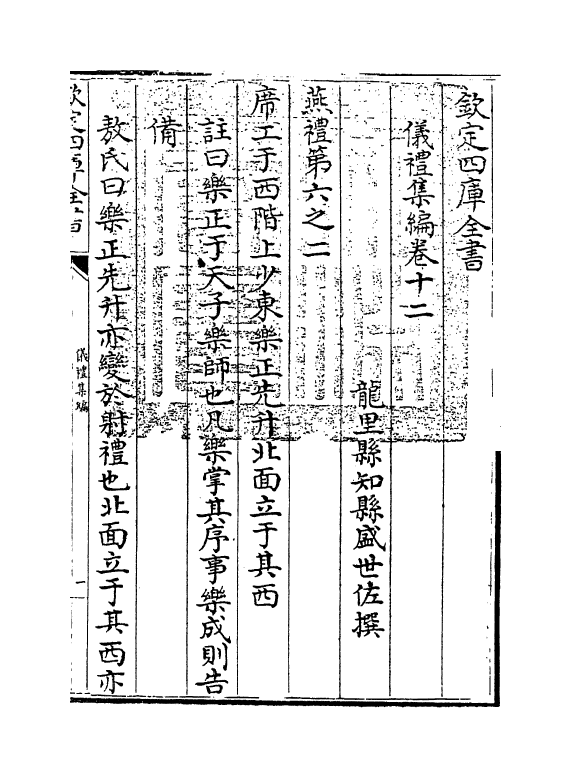 欽定四庫全書
儀禮集編卷十二
龍里縣知縣盛世佐撰
燕禮第六之二
席工于西階上少東樂正先升北面立于其西
註曰樂正于天子樂師也凡樂掌其序事樂成則告
備
敖氏曰樂正先升亦變於射禮也北面立于其西亦
欽定四庫全書
儀禮集編
一